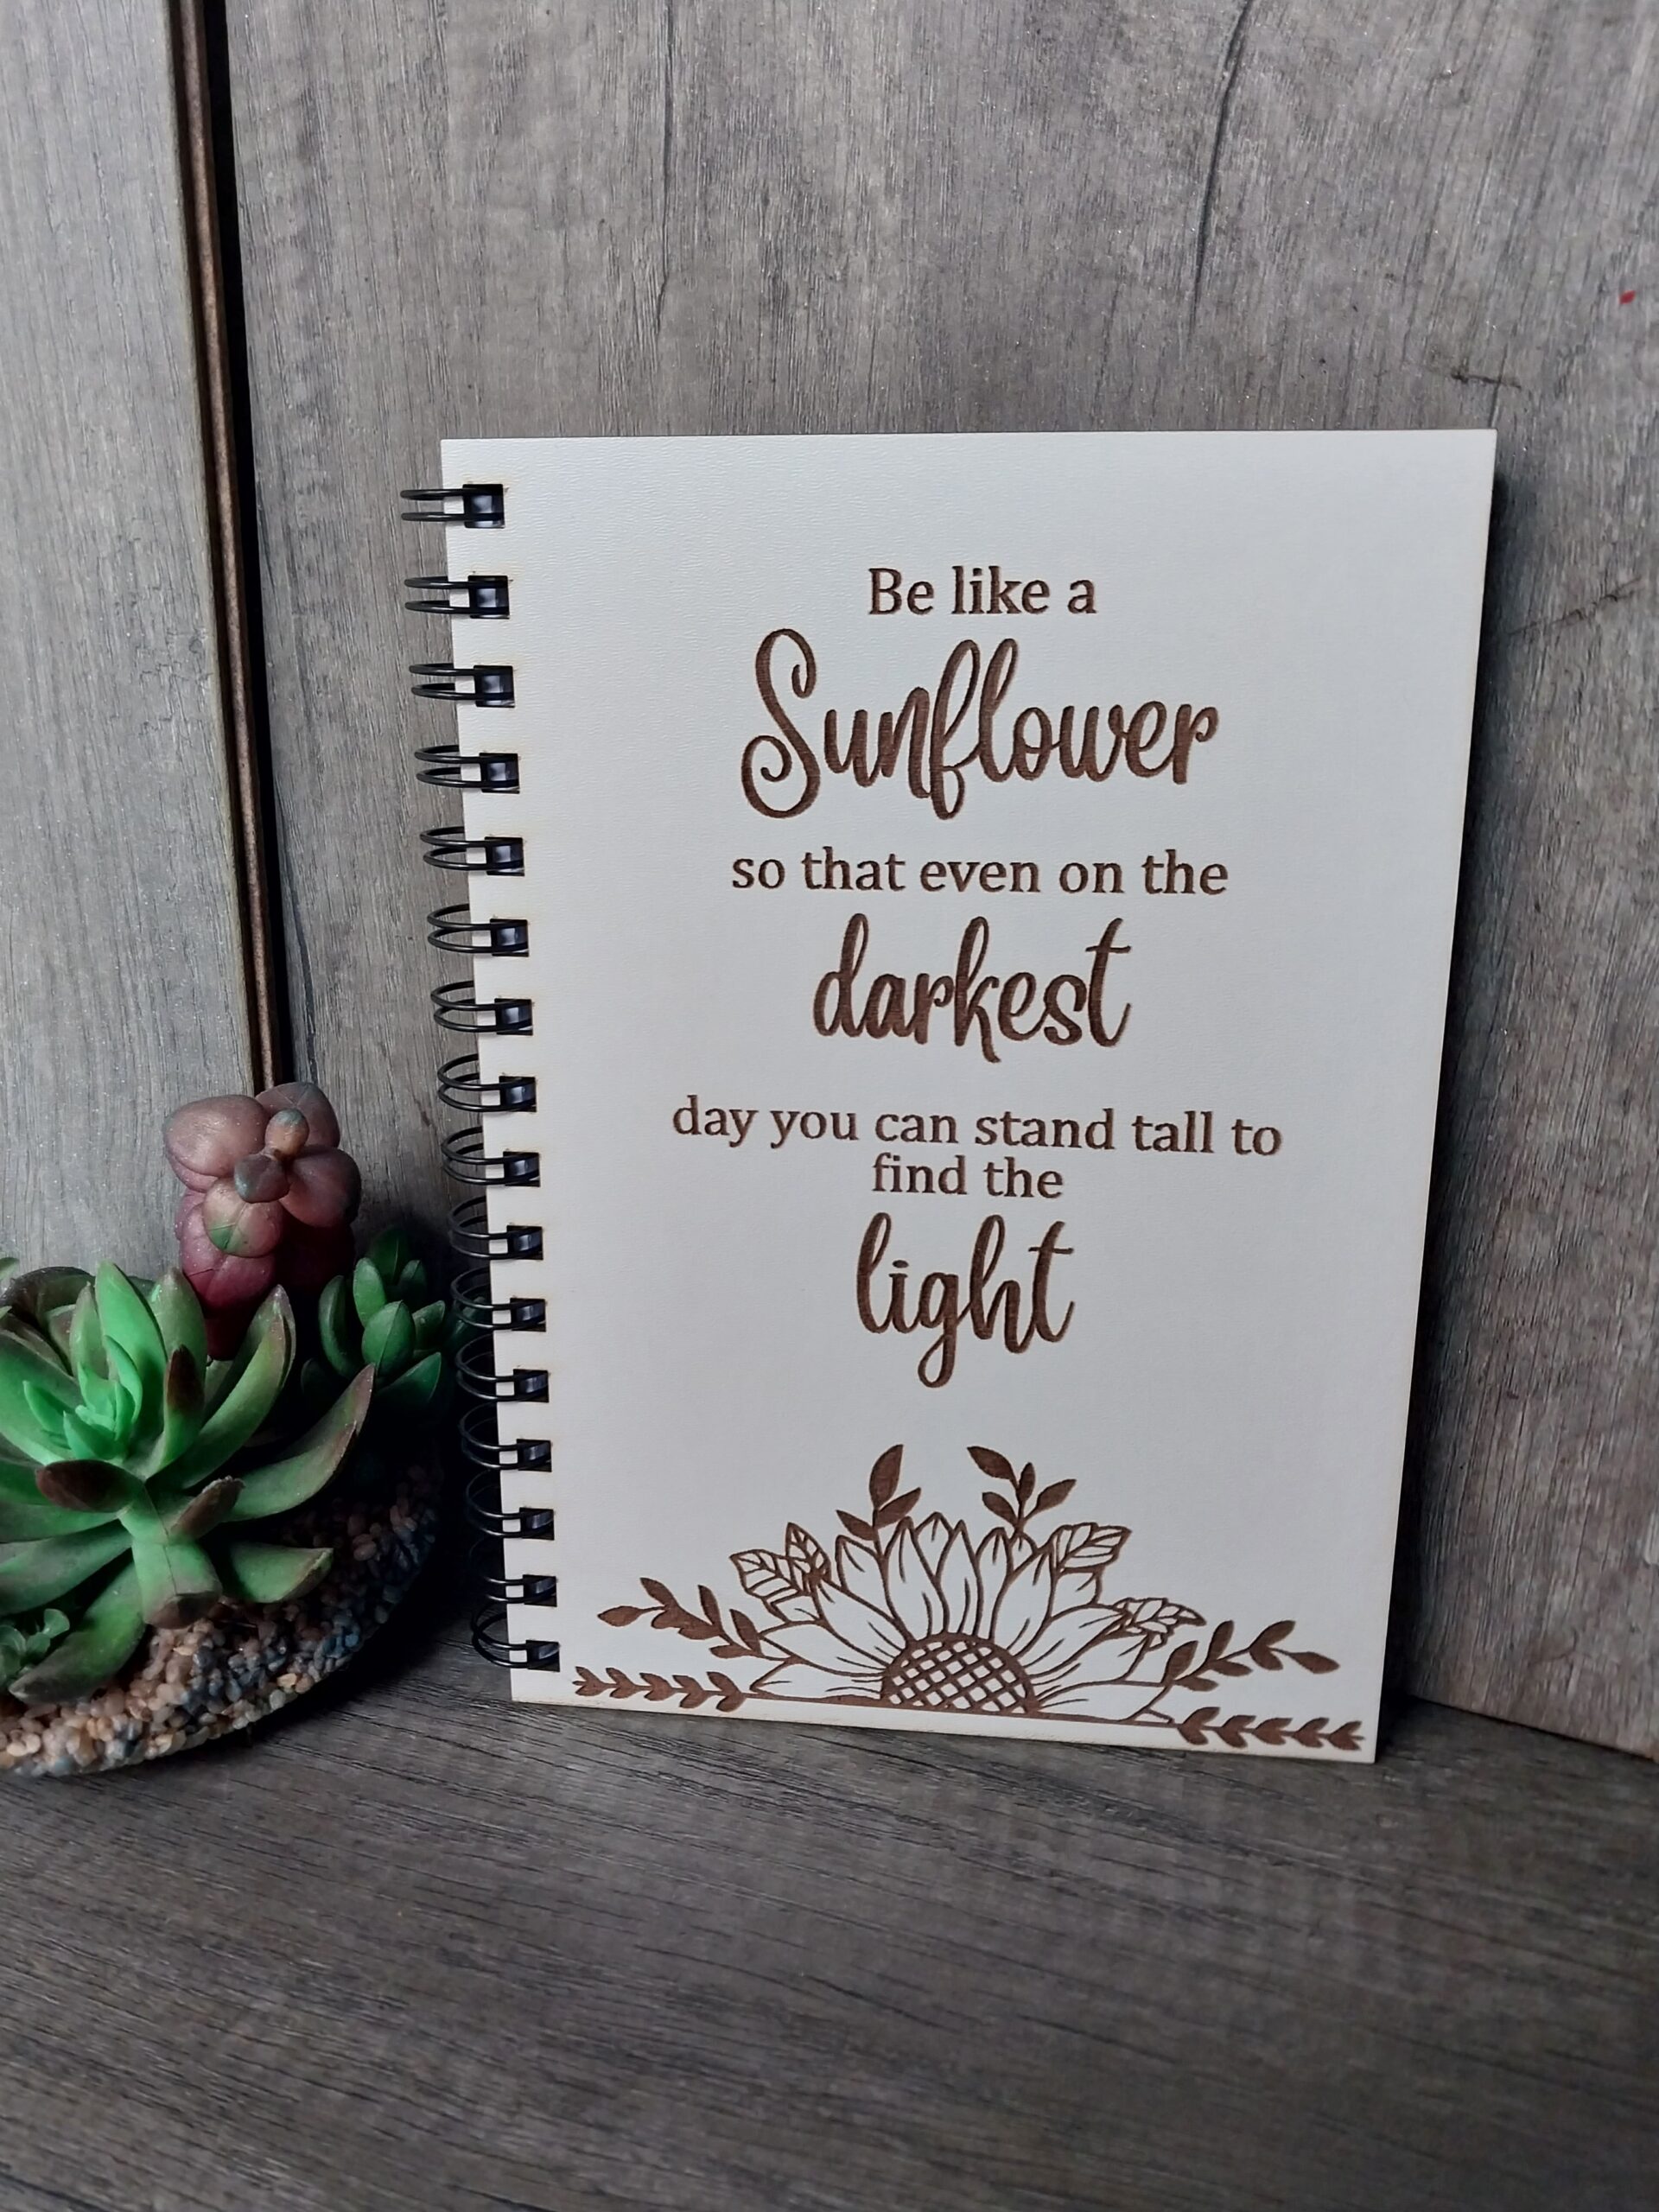 Be like a
Sunflower
so that even on the
darkest
day you can stand tall to
find the
light